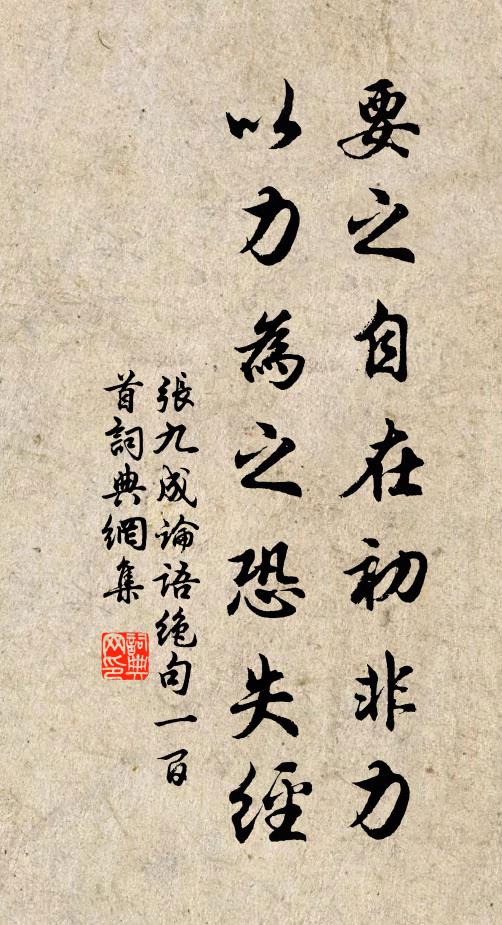 要之自在初非力
以力為之恐失經
張九成論語絶句一百
首詞典網集
詞典网印